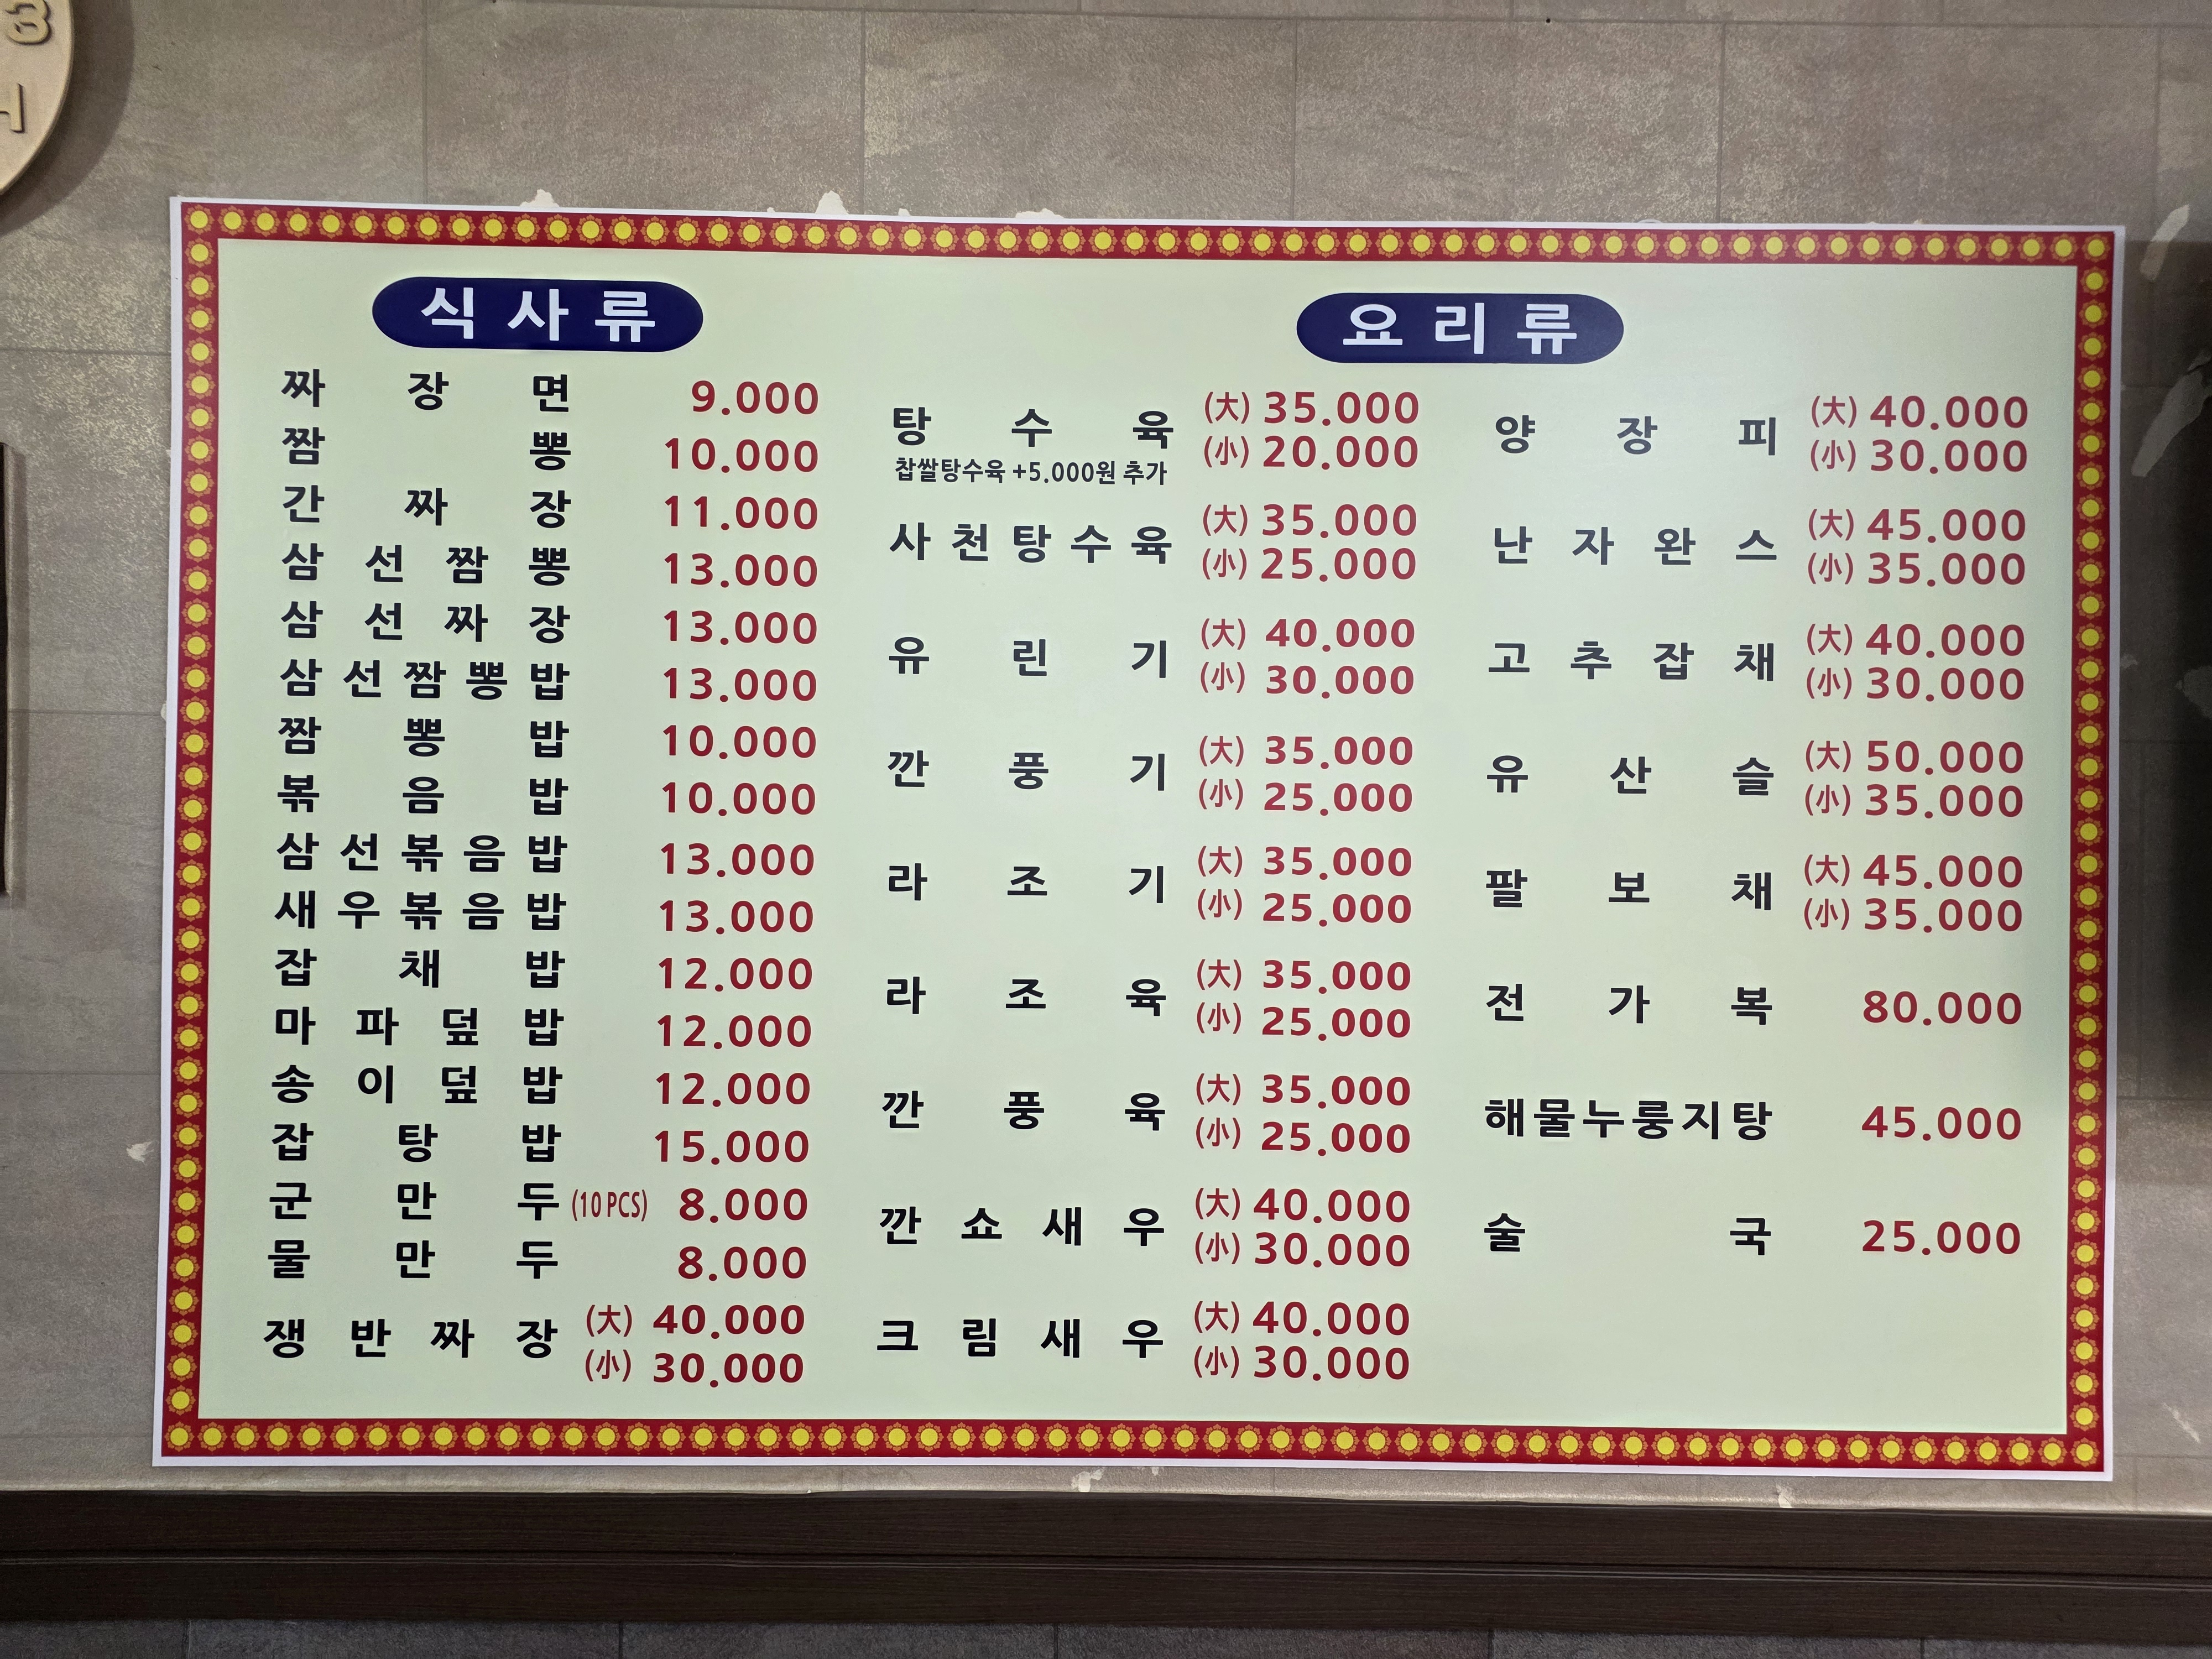 3
식사류
짜장면 9.000
짬뽕 10.000
간짜장 11.000
삼선짬뽕 13.000
삼선짜장 13.000
삼선짬뽕밥 13.000
짬뽕밥 10.000
볶음밥 10.000
삼선볶음밥 13.000
새우볶음밥 13.000
잡채밥 12.000
마파덮밥 12.000
송이덮밥 12.000
잡탕밥 15.000
군만두 (10 PCS) 8.000
물만두 8.000
쟁반짜장 (大) 40.000
(小) 30.000
요리류
탕수육 (大) 35.000
(小) 20.000
찹쌀탕수육 +5.000원 추가
사천탕수육 (大) 35.000
(小) 25.000
유린기 (大) 40.000
(小) 30.000
깐풍기 (大) 35.000
(小) 25.000
라조기 (大) 35.000
(小) 25.000
라조육 (大) 35.000
(小) 25.000
깐풍육 (大) 35.000
(小) 25.000
깐쇼새우 (大) 40.000
(小) 30.000
크림새우 (大) 40.000
(小) 30.000
양장피 (大) 40.000
(小) 30.000
난자완스 (大) 45.000
(小) 35.000
고추잡채 (大) 40.000
(小) 30.000
유산슬 (大) 50.000
(小) 35.000
팔보채 (大) 45.000
(小) 35.000
전가복 80.000
해물누룽지탕 45.000
술국 25.000